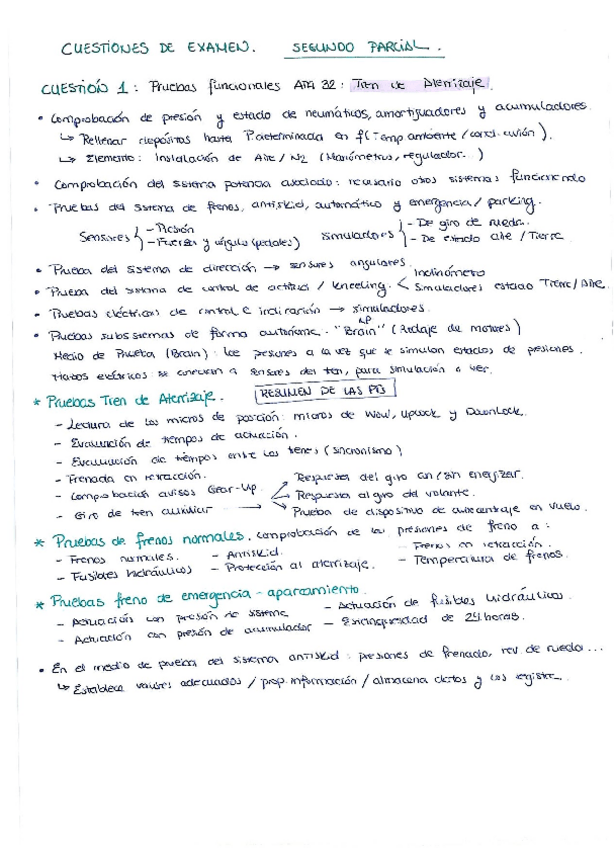 CUESTIONES DE EXAMEN. SEGUNDO PARCIAL.
CUESTIÓN 1: Pruebas funcionales ATA 32: Tren de Aterrizaje.
• Comprobación de presión y estado de neumáticos, amortiguadores y acumuladores
↳ Rellenar depósitos hasta P determinada en f(Temp ambiente / cond. avión).
↳ Elemento: Instalación de Aire / N2 (Manómetros, regulador...)
• Comprobación del sistema potencia asociado: necesario otros sistemas funcionando
• Pruebas del sistema de frenos, antiskid, automático y emergencia / parking.
Sensores { - Presión
- Fuerza y ángulo (pedales)
Simuladores { - De giro de rueda.
- De estado aire / Tierra
• Prueba del sistema de dirección → sensores angulares.
• Prueba del sistema de control de actitud / kneeling. < Inclinómetro
Simuladores estado Tierra / Aire.
• Pruebas eléctricas de control e indicación → simuladores.
• Pruebas subsistemas de forma autónoma - "Brain" (Rodaje de motores)
Medio de Prueba (Brain): lee presiones a la vez que se simulan estados de presiones.
Mazos eléctricos se conectan a sensores del tren, para simulación a ver.
* Pruebas Tren de Aterrizaje. RESUMEN DE LAS
- Lectura de los micros de posición: micros de WoW, Uplock y DownLock.
- Evaluación de tiempos de actuación.
- Evaluación de tiempos entre los trenes (sincronismo)
- Frenada en retracción.
- Comprobación avisos Gear-Up.
- Giro de tren auxiliar → Respuesta del giro con/sin energizar.
Respuesta al giro del volante.
Prueba de dispositivo de autocentraje en vuelo.
* Pruebas de frenos normales, comprobación de las presiones de freno a:
- Frenos normales. - Antiskid. - Frenos en retracción.
- Fusibles hidráulicos - Protección al aterrizaje. - Temperatura de frenos.
* Pruebas freno de emergencia - aparcamiento.
- Actuación con presión de sistema - Actuación de fusibles hidráulicos.
- Actuación con presión de acumulador - Estanqueidad de 24 horas.
• En el medio de prueba del sistema antiskid: presiones de frenado, rev. de rueda...
↳ Establece valores adecuados / prop. información / almacena datos y los registra.